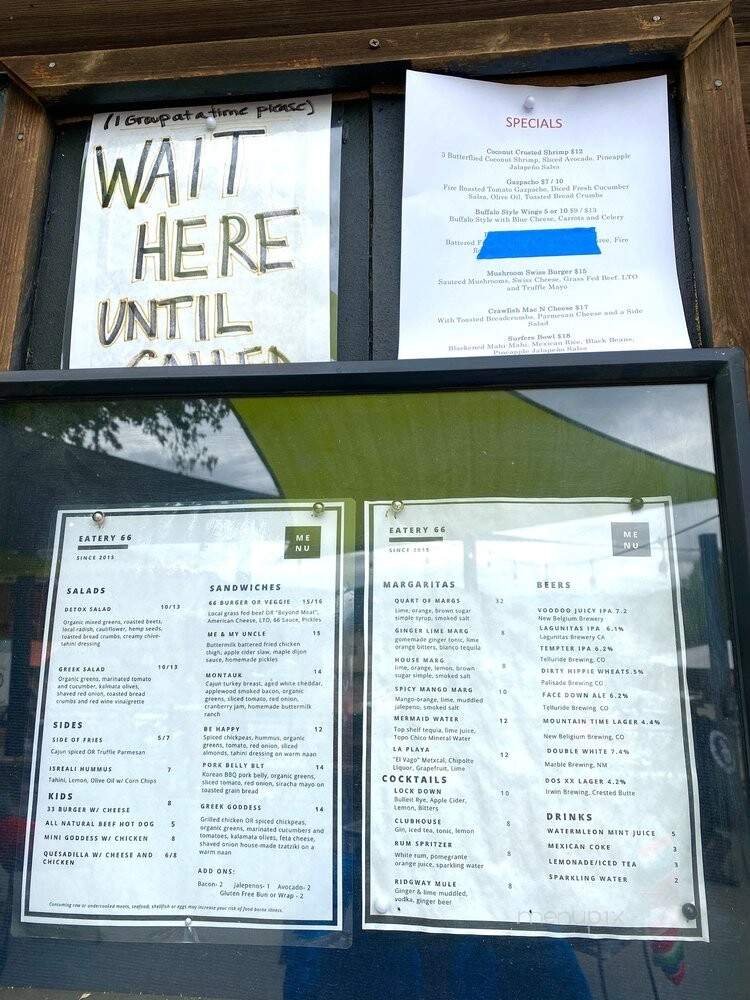 (1 Group at a time please)
WAIT
HERE
UNTIL
CALLED
SPECIALS
Coconut Crusted Shrimp $12
3 Butterflied Coconut Shrimp, Sliced Avocado, Pineapple
Jalapeño Salsa
Gazpacho $7 / 10
Fire Roasted Tomato Gazpacho, Diced Fresh Cucumber
Salsa, Olive Oil, Toasted Bread Crumbs
Buffalo Style Wings 5 or 10 $9 / $13
Buffalo Style with Blue Cheese, Carrots and Celery
Battered
Fire
Mushroom Swiss Burger $15
Sauteed Mushrooms, Swiss Cheese, Grass Fed Beef, LTO
and Truffle Mayo
Crawfish Mac N Cheese $17
With Toasted Breadcrumbs, Parmesan Cheese and a Side
Salad
Surfers Bowl $18
Blackened Mahi-Mahi, Mexican Rice, Black Beans,
Pineapple Jalapeño Salsa
EATERY 66
SINCE 2015
ME
NU
SALADS
DETOX SALAD 10/13
Organic mixed greens, roasted beets,
local-radish, cauliflower, hemp seeds,
toasted bread crumbs, creamy chive-
tahini dressing
GREEK SALAD 10/13
Organic greens, marinated tomato
and cucumber, kalmata olives,
shaved red onion, toasted bread
crumbs and red wine vinaigrette
SIDES
SIDE OF FRIES 5/7
Cajun spiced OR Truffle Parmesan
ISREALI HUMMUS 7
Tahini, Lemon, Olive Oil w/ Corn Chips
KIDS
33 BURGER W/ CHEESE 8
ALL NATURAL BEEF HOT DOG 5
MINI GODDESS W/ CHICKEN 8
QUESADILLA W/ CHEESE AND 6/8
CHICKEN
SANDWICHES
66 BURGER OR VEGGIE 15/16
Local grass fed beef OR "Beyond Meat",
American Cheese, LTO, 66 Sauce, Pickles
ME & MY UNCLE 15
Buttermilk battered fried chicken
thigh, apple cider slaw, maple dijon
sauce, homemade pickles
MONTAUK 14
Cajun turkey breast, aged white cheddar,
applewood smoked bacon, organic
greens, sliced tomato, red onion,
cranberry jam, homemade buttermilk
ranch
BE HAPPY 12
Spiced chickpeas, hummus, organic
greens, tomato, red onion, sliced
almonds, tahini dressing on warm naan
PORK BELLY BLT 14
Korean BBQ pork belly, organic greens,
sliced tomato, red onion, siracha mayo on
toasted grain bread
GREEK GODDESS 14
Grilled chicken OR spiced chickpeas,
organic greens, marinated cucumbers and
tomatoes, kalamata olives, feta cheese,
shaved onion house-made tzatziki on a
warm naan
ADD ONS:
Bacon- 2 Jalepenos- 1 Avocado- 2
Gluten Free Bun or Wrap - 2
Consuming raw or undercooked meats, seafood, shellfish or eggs may increase your risk of food borne illness.
EATERY 66
SINCE 2015
ME
NU
MARGARITAS
QUART OF MARGS 32
Lime, orange, brown sugar
simple syrup, smoked salt
GINGER LIME MARG 8
gomemade ginger tonic, lime
orange bitters, blanco tequila
HOUSE MARG 8
lime, orange, lemon, brown
sugar simple, smoked salt
SPICY MANGO MARG 10
Mango-orange, lime, muddled
jalepeno, smoked salt
MERMAID WATER 12
Top shelf tequila, lime juice,
Topo Chico Mineral Water
LA PLAYA 12
"El Vago" Metxcal, Chipolte
Liquor, Grapefruit, Lime
COCKTAILS
LOCK DOWN 10
Bulleit Rye, Apple Cider,
Lemon, Bitters
CLUBHOUSE 8
Gin, iced tea, tonic, lemon
RUM SPRITZER 8
White rum, pomegrante
orange juice, sparkling water
RIDGWAY MULE 8
Ginger & lime muddled,
vodka, ginger beer
BEERS
VOODOO JUICY IPA 7.2
New Belgium Brewery
LAGUNITAS IPA 6.1%
Lagunitas Brewery CA
TEMPTER IPA 6.2%
Telluride Brewing, CO
DIRTY HIPPIE WHEAT5.5%
Palisade Brewing, CO
FACE DOWN ALE 6.2%
Telluride Brewing CO
MOUNTAIN TIME LAGER 4.4%
New Beligium Brewing, CO
DOUBLE WHITE 7.4%
Marble Brewing, NM
DOS XX LAGER 4.2%
Irwin Brewing, Crested Butte
DRINKS
WATERMLEON MINT JUICE 5
MEXICAN COKE 3
LEMONADE/ICED TEA 3
SPARKLING WATER 2
menupix